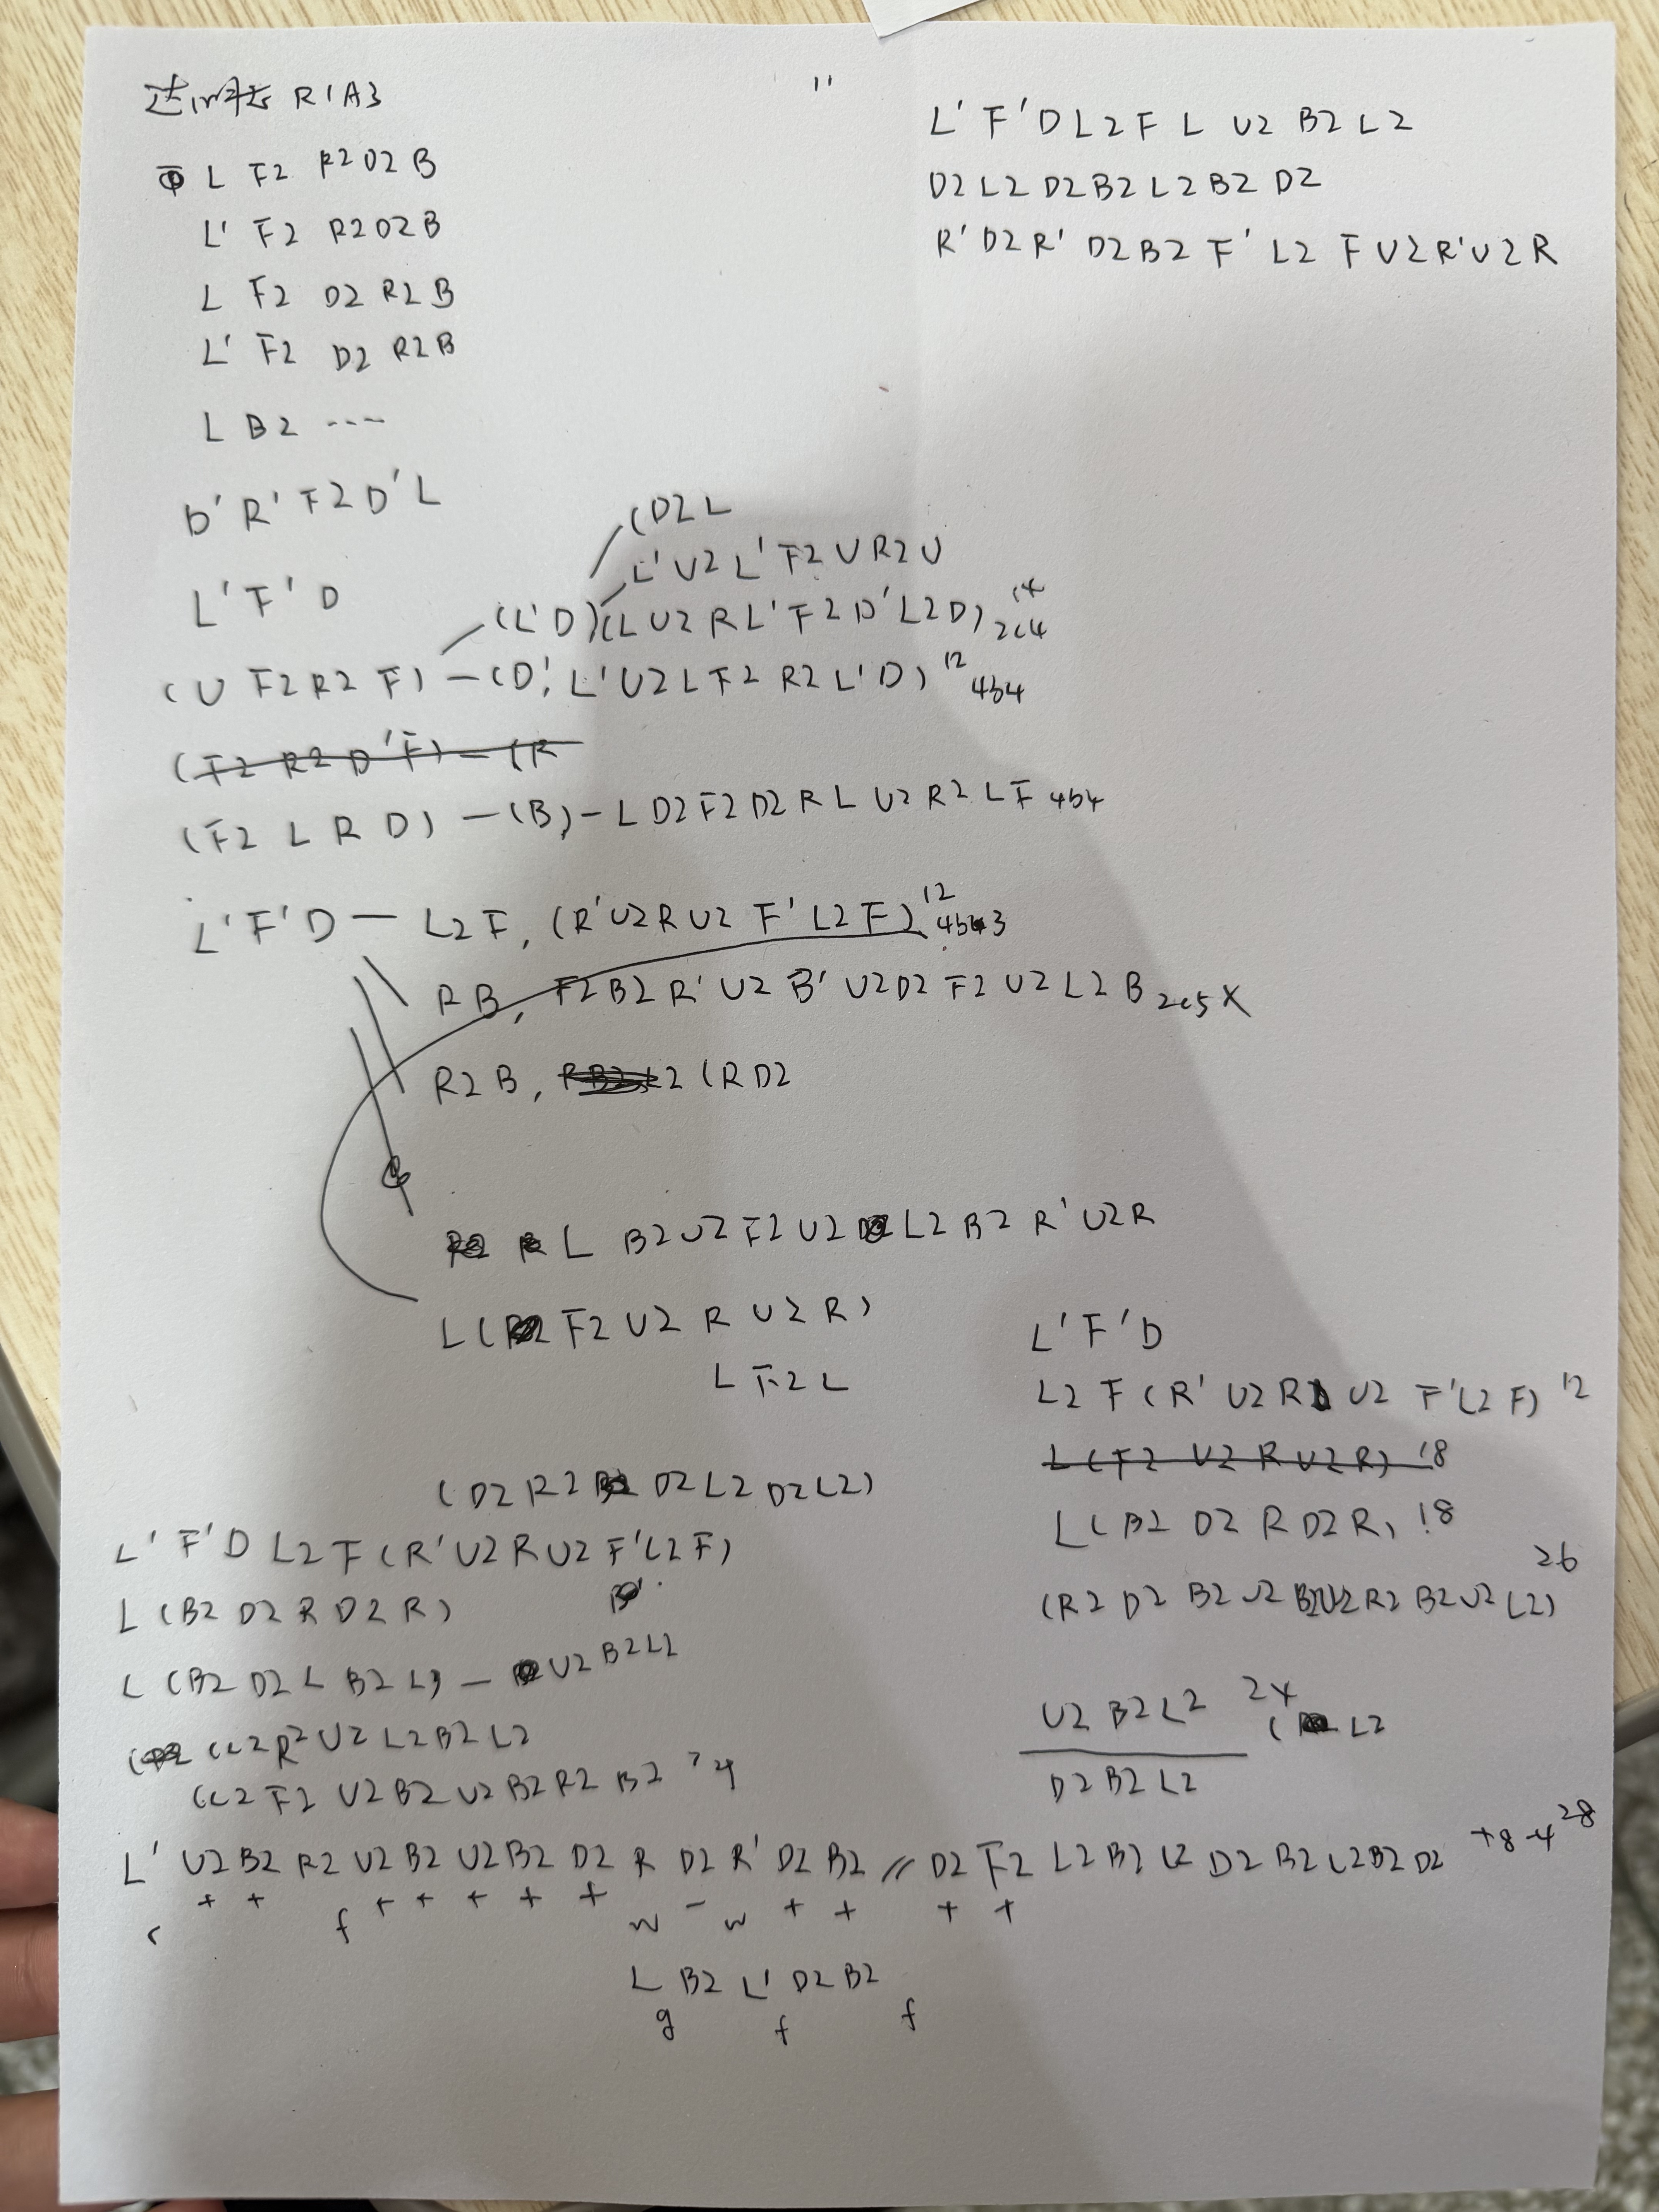 R1A3
L F2 R2 D2 B
L' F2 R2 D2 B
L F2 D2 R2 B
L' F2 D2 R2 B
L B2 ---
D' R' F2 D' L
L' F' D
(D2 L
L' U2 L' F2 U R2 U
(L' D)(L U2 R L' F2 D' L2 D) 14 2c4
(U F2 R2 F) — (D', L' U2 L F2 R2 L' D) 12 4b4
(F2 R2 D' F) — (R
(F2 L R D) — (B) - L D2 F2 D2 R L U2 R2 L F 4b4
L' F' D — L2 F, (R' U2 R U2 F' L2 F) 12 4b3
R B, F2 B2 R' U2 B' U2 D2 F2 U2 L2 B 2c5 X
R2 B, (R D2
L B2 U2 F2 U2 L2 B2 R' U2 R
L ( F2 U2 R U2 R)
L F2 L
(D2 R2 D2 L2 D2 L2)
L' F' D L2 F (R' U2 R U2 F' L2 F)
L (B2 D2 R D2 R)
L (B2 D2 L B2 L) — U2 B2 L2
(L2 R2 U2 L2 B2 L2
(L2 F2 U2 B2 U2 B2 R2 B2
L' U2 B2 R2 U2 B2 U2 B2 D2 R D2 R' D2 B2 // D2 F2 L2 B2 L2 D2 B2 L2 B2 D2 +8 -4 28
+ + f + + + + + w - w + + + +
L B2 L' D2 B2
g f f
"
L' F' D L2 F L U2 B2 L2
D2 L2 D2 B2 L2 B2 D2
R' D2 R' D2 B2 F' L2 F U2 R' U2 R
L' F' D
L2 F (R' U2 R U2 F' L2 F) 12
L (F2 U2 R U2 R) 18
L (B2 D2 R D2 R) 18
26
(R2 D2 B2 U2 B2 U2 R2 B2 U2 L2)
U2 B2 L2
( L2
D2 B2 L2